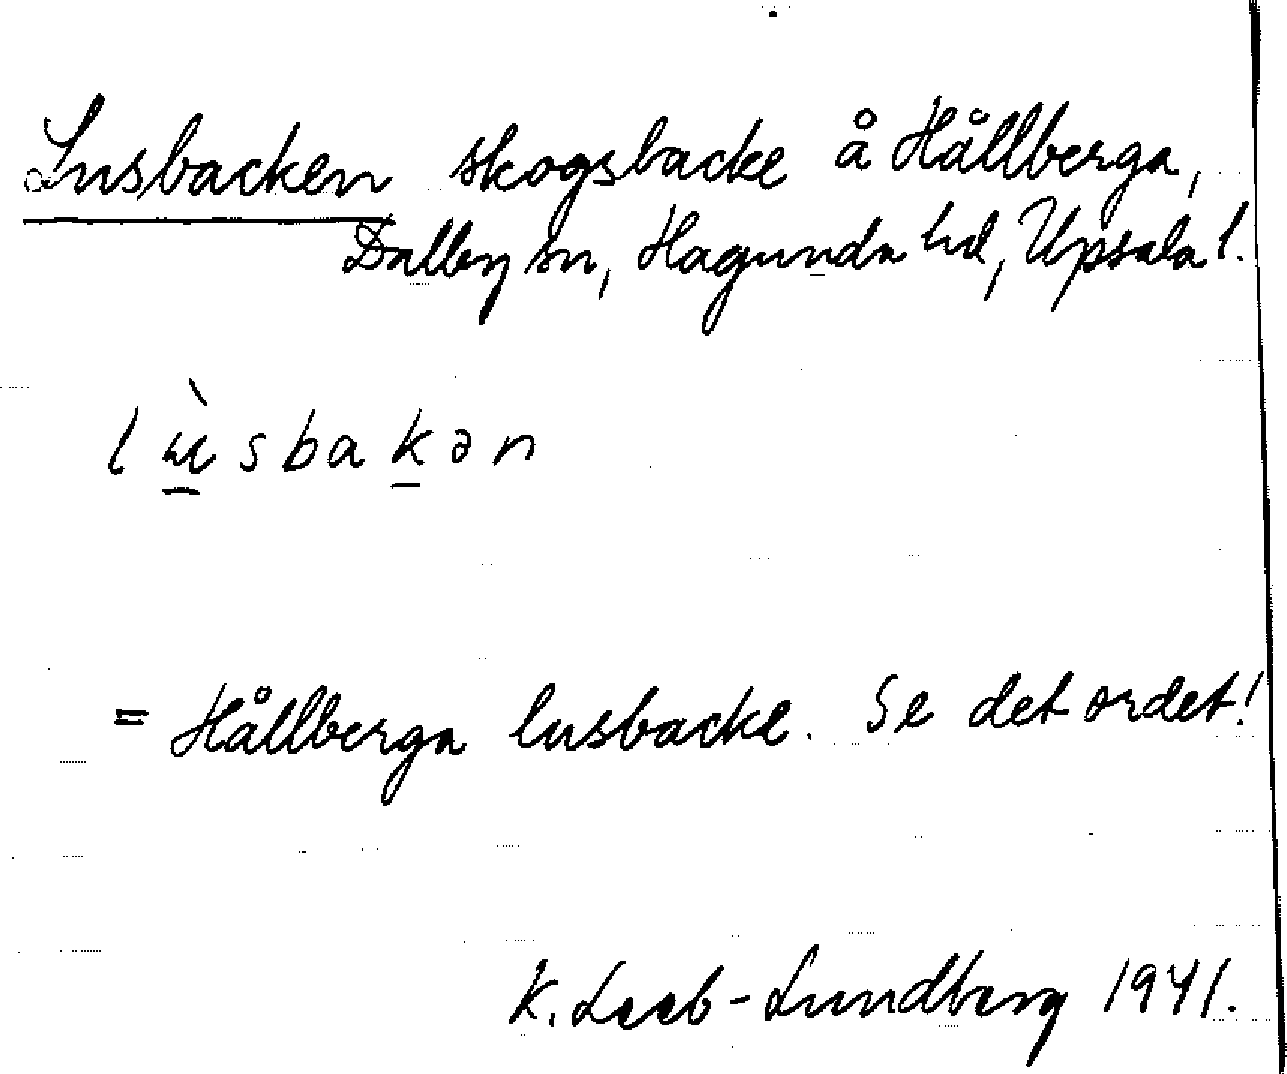 Lusbacken skogsbacke å Hållberga,
Dalby sn, Hagunda hd, Upsala l.
lùsbakən
= Hållberga lusbacke. Se det ordet!
K. Leeb-Lundberg 1941.